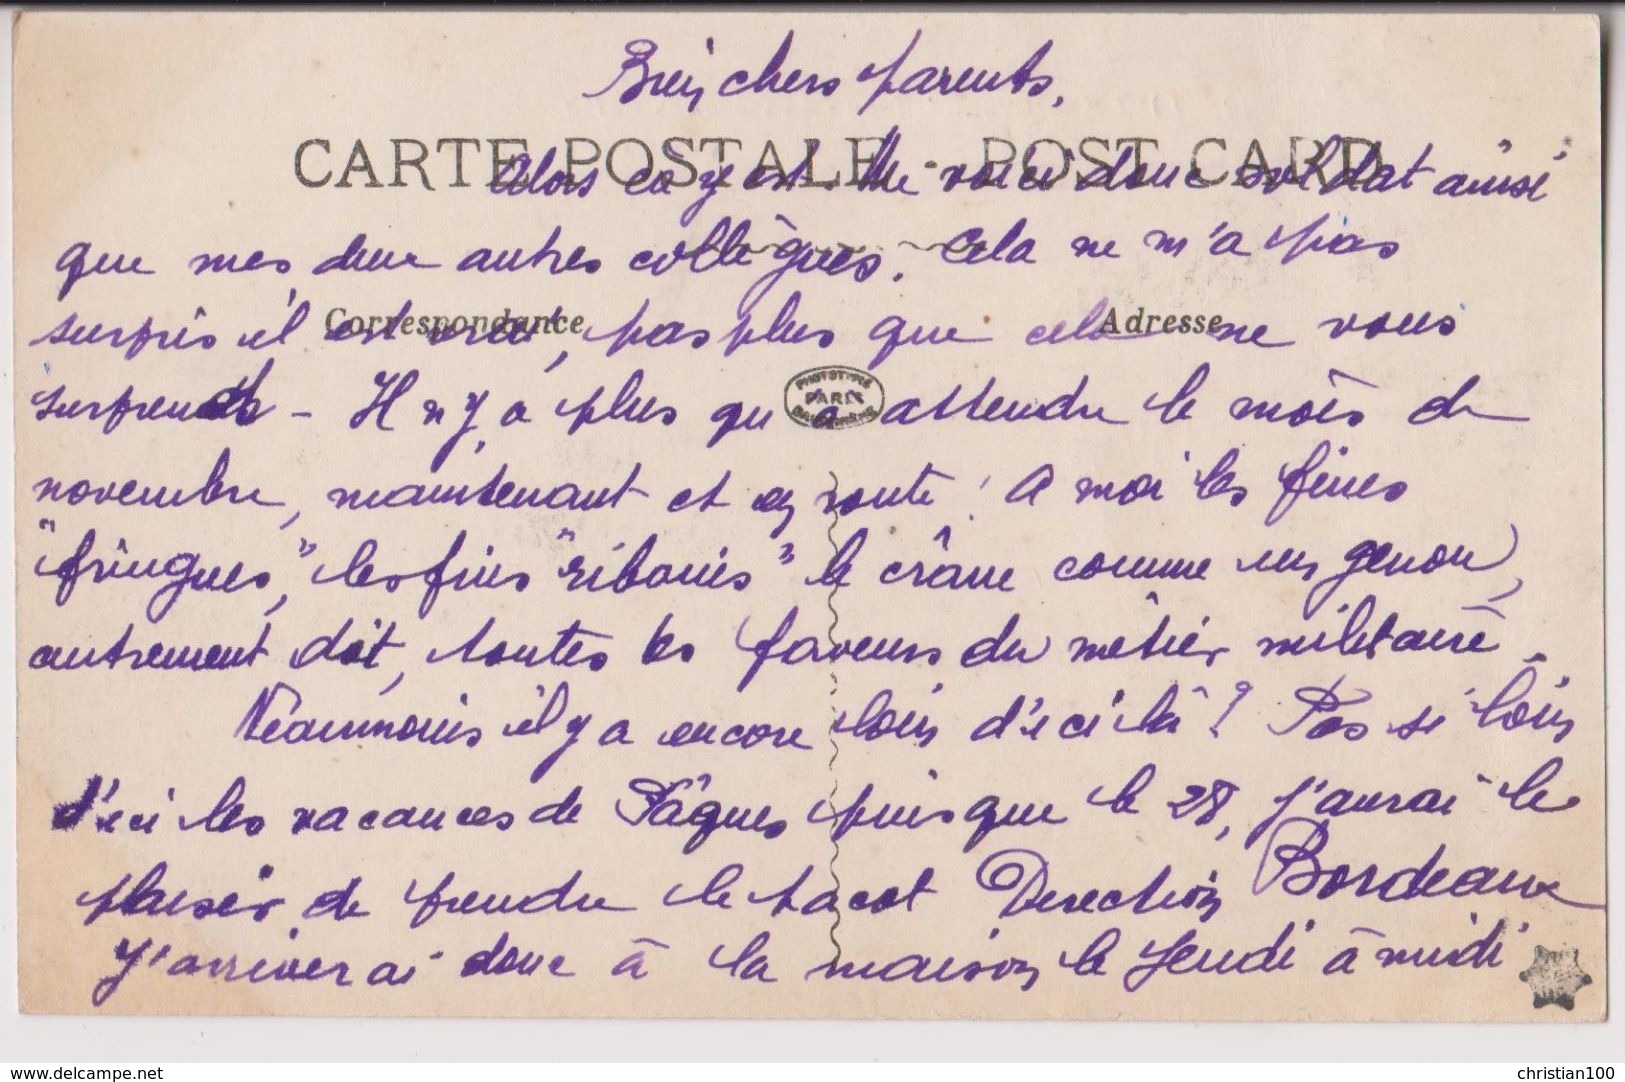 Bien chers parents,
CARTE POSTALE - POST CARD
Alors ça y est. Me voici donc soldat ainsi
que mes deux autres collègues. Cela ne m'a pas
Correspondance Adresse
surpris il est vrai, pas plus que cela ne vous
surprendra - Il n'y a plus qu'à attendre le mois de
PHOTOTYPIE
PARIS
novembre, maintenant et en route ! A moi les fines
"fringues," les fins "ribouis" le crâne comme un genou,
autrement dit, toutes les faveurs du métier militaire.
Néanmoins il y a encore loin d'ici là ! Pas si loin
d'ici les vacances de Pâques puisque le 28, j'aurai le
plaisir de prendre le tacot Direction Bordeaux
J'arriverai donc à la maison le Jeudi à midi
www.delcampe.net
christian100